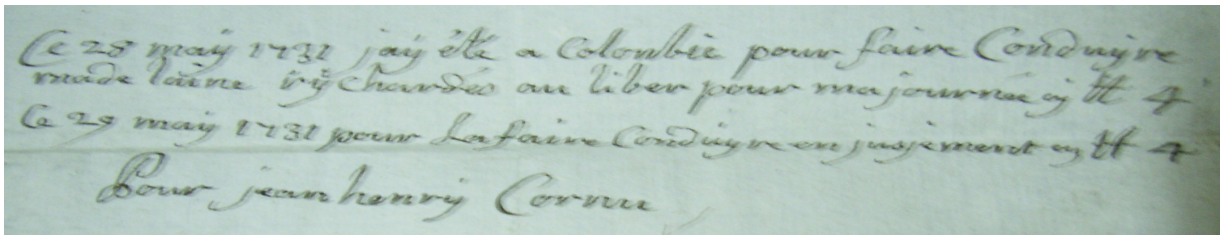 Ce 28 maÿ 1731 jaÿ été a Colombié pour faire Conduyre
made laine rÿchardes au liber pour ma journéé cy tt 4
Ce 29 maÿ 1731 pour La faire Conduyre en jujement cy tt 4
Pour jean henrÿ Cornu